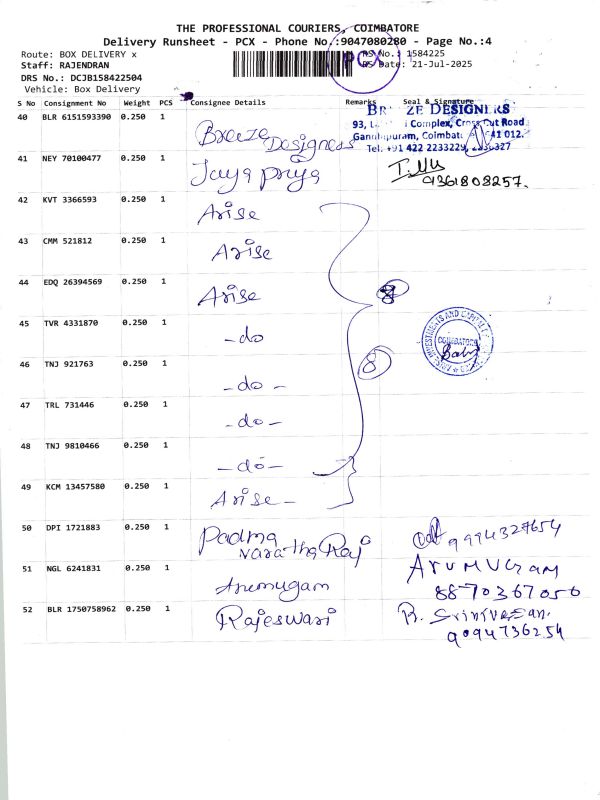 THE PROFESSIONAL COURIERS, COIMBATORE
Delivery Runsheet - PCX - Phone No.:9047080280 - Page No.:4
Route: BOX DELIVERY x
RS No.: 1584225
Staff: RAJENDRAN
PCX
RS Date: 21-Jul-2025
DRS No.: DCJB158422504
Vehicle: Box Delivery
S No Consignment No Weight PCS Consignee Details Remarks Seal & Signature
40 BLR 6151593390 0.250 1 Breeze Designers
BR ZE DESIGNERS
93, Complex, Cross Cut Road
Gandhipuram, Coimbat 41 012.
Tel: +91 422 2233229,
41 NEY 70100477 0.250 1 Jaya priya
9361808257.
42 KVT 3366593 0.250 1 Arise
43 CMM 521812 0.250 1 Arise
44 EDQ 26394569 0.250 1 Arise
8
45 TVR 4331870 0.250 1 -do
INVESTMENTS AND CAPITAL
COIMBATORE
46 TNJ 921763 0.250 1 -do-
8
47 TRL 731446 0.250 1 -do-
48 TNJ 9810466 0.250 1 -do-
49 KCM 13457580 0.250 1 Arise-
50 DPI 1721883 0.250 1 Padma
varatha Raj
9994327654
51 NGL 6241831 0.250 1 Arumugam
ARUMUGAM
8870367056
52 BLR 1750758962 0.250 1 Rajeswari
R. Srinivasan.
9094736254